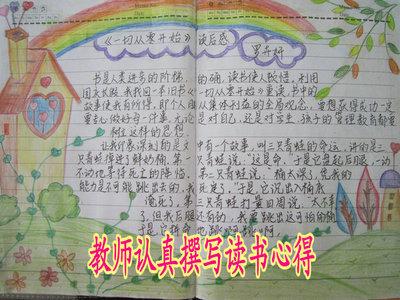 《一切从零开始》读后感
罗开妍
书是人类进步的阶梯，的确，读书使人敏悟，利用
国庆长假，来我回一本旧书《一切从零开始》重读，书中的
故事使我有所得，即个人服从集体利益的全局观念，要想获得成功一定
要扎扎实做好每一件事，无论是对自己，还是对学生、孩子的管理教育都要
树立这样的思想。
让我印象深刻的是文中有一个故事，叫三只青蛙的命运，讲的是三
只青蛙掉进了鲜奶桶，第一只青蛙说，“这是命。”于是它盘起后腿，一动
不动地等待死亡的降临。第二只青蛙说，“桶太深了，凭我的
能力是不可能跳出去的，我死定了，”于是，它沉入桶底
淹死了，第三只青蛙打量四周说，“太不幸
了，但我后腿还有劲，我要跳出这可怕的桶
于是，它拼命
教师认真撰写读书心得